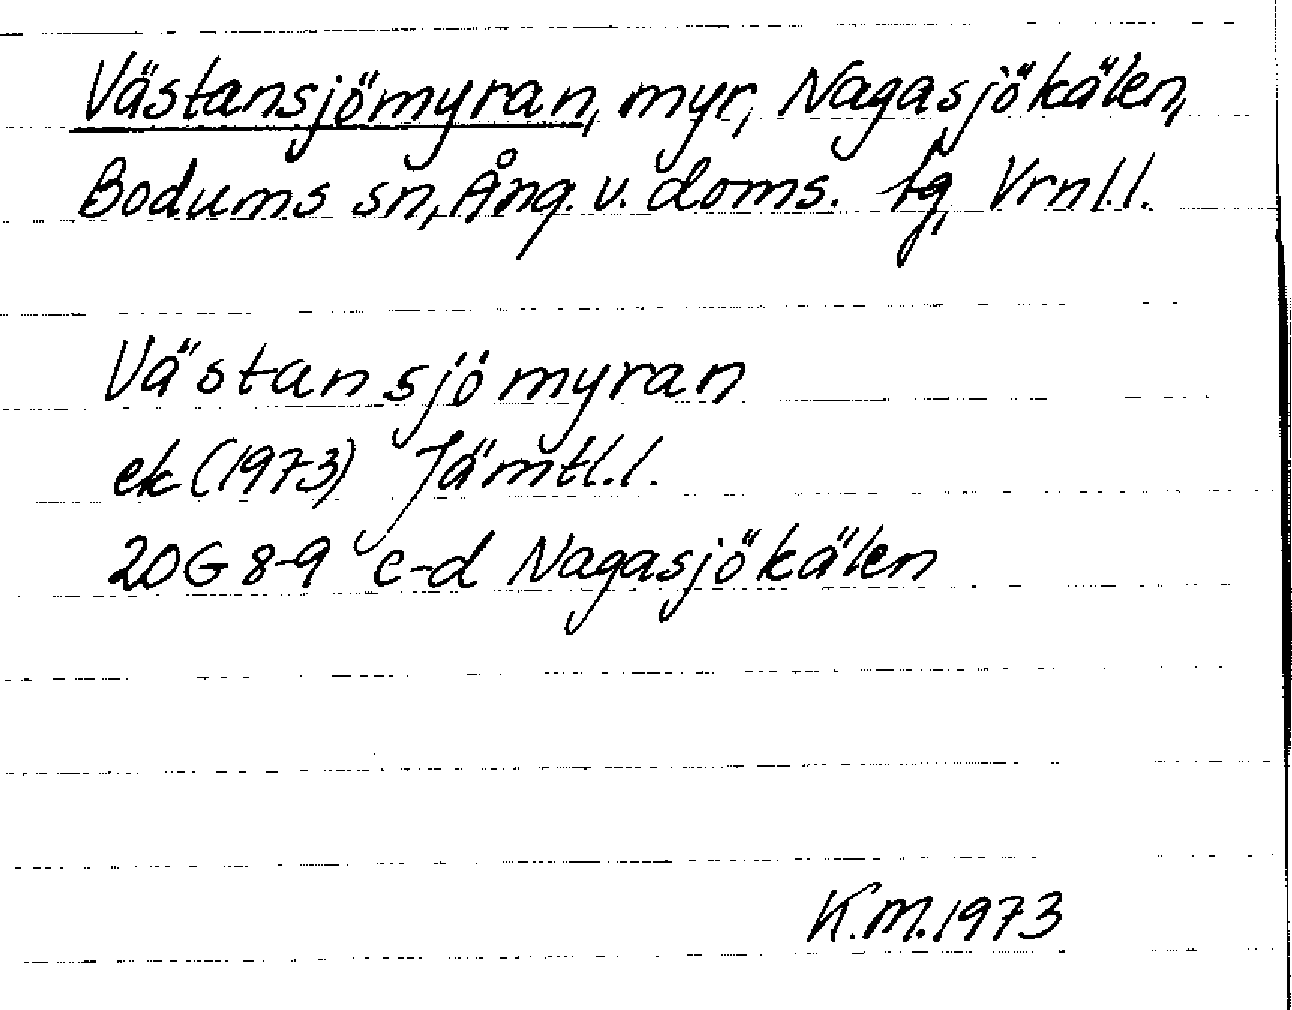 Västansjömyran, myr, Nagasjökälen,
Bodums sn, Ång. v. doms. tg, Vrnl.l.
Västansjömyran
ek (1973) Jämtl.l.
20G 8-9 c-d Nagasjökälen
K.M. 1973